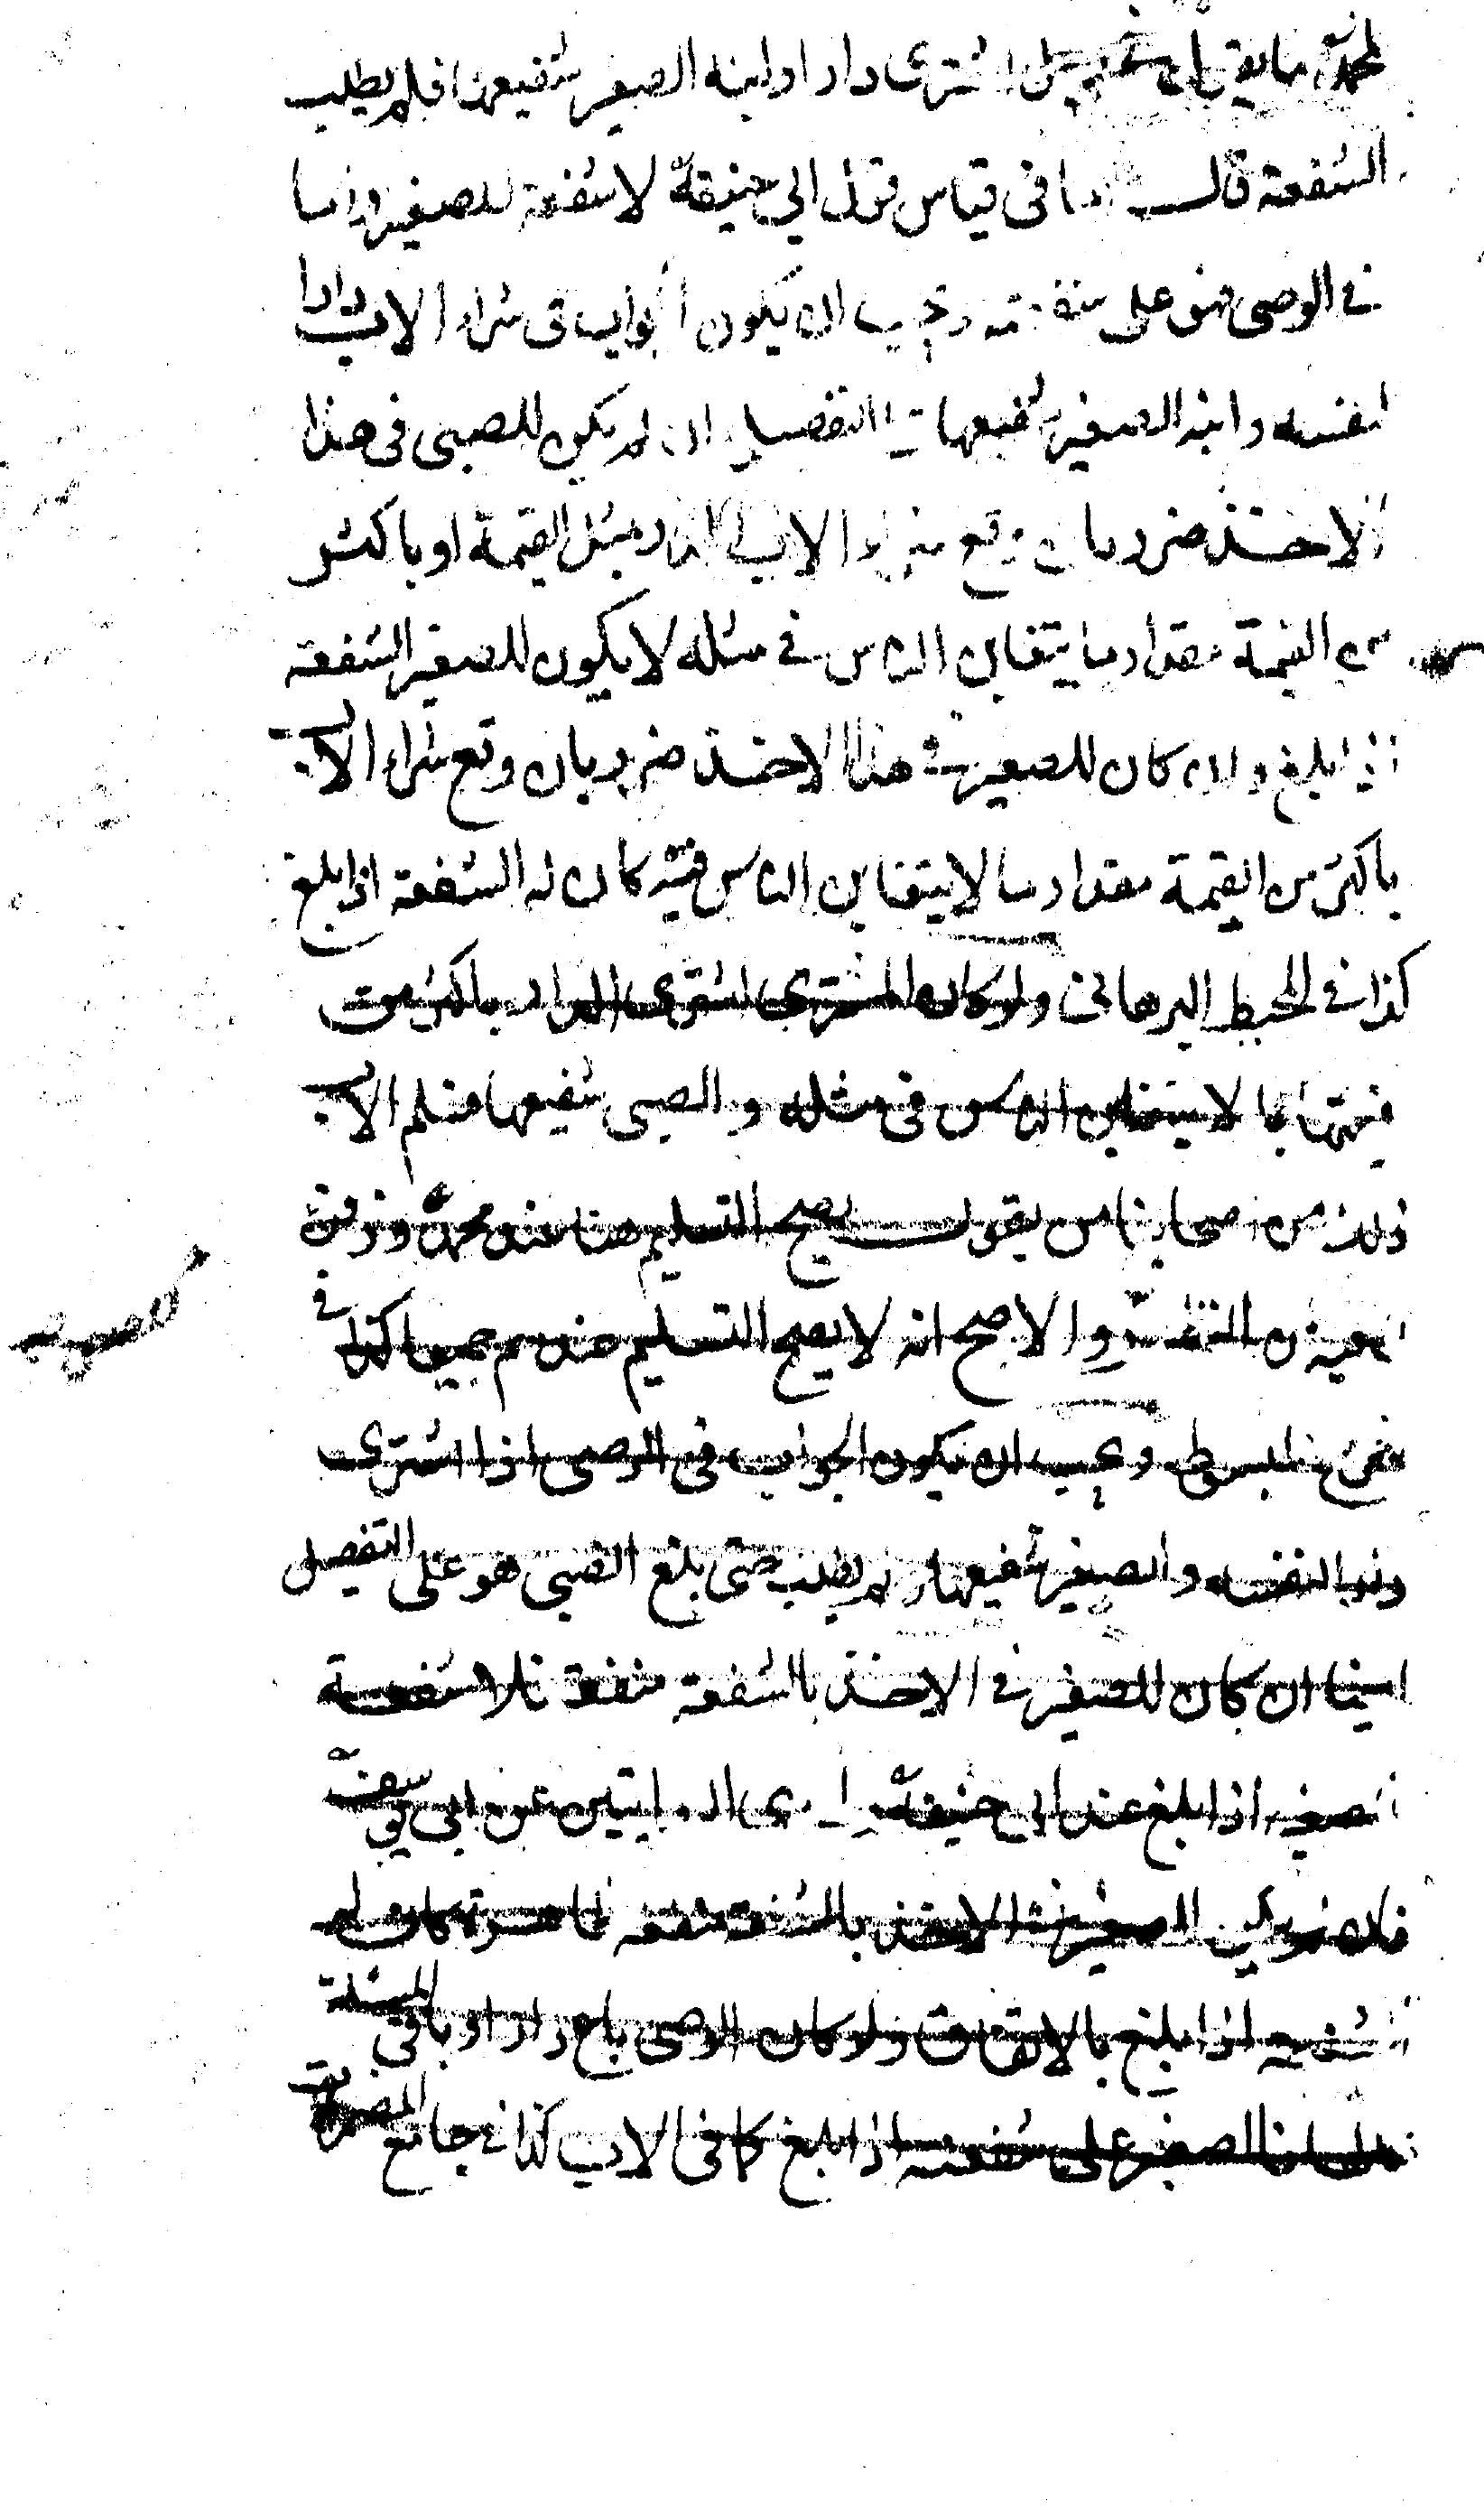 لمحمد ما يقول في رجل اشترى دارا وابنه الصغير شفيعها فلم يطلب
الشفعة قال اما فى قياس قول ابي حنيفة لا شفعة للصغير واما
في الوصى فهو على شفعته ويجب ان يكون الجواب فى شراء الاب دارا
لنفسه وابنه الصغير شفيعها التفصيل ان لم يكن للصبى فى هذا
الاخذ ضرر بان وقع شراء الاب الدار بمثل القيمة او باكثر
من القيمة مقدار ما يتغابن الناس في مثله لا يكون للصغير الشفعة
اذا بلغ وان كان للصغير في هذا الاخذ ضرر بان وقع شراء الاب
باكثر من القيمة مقدار ما لا يتغابن الناس فيه كان له الشفعة اذا بلغ
كذا في المحيط البرهانى ولو كان المشترى اشترى الدار باكثر من
قيمتها بما لا يتغابن الناس فى مثله والصبى شفيعها فسلم الاب
ذلك من اصحابنا من يقول يصح التسليم هنا عند محمد وزفر
والاصح انه لا يصح التسليم عندهم جميعا كذا في
ويجب ان يكون الجواب فى الوصى اذا اشترى
دارا لنفسه والصغير شفيعها ولم يطلب حتى بلغ الصبى هو على التفصيل
ايضا ان كان للصغير في الاخذ بالشفعة منفعة فلا شفعة
للصغير اذا بلغ عند ابي حنيفة واحدى الروايتين عن ابى يوسف
فان لم يكن للصغير في الاخذ بالشفعة منفعة ظاهرة كان له
الشفعة اذا بلغ بالاتفاق ولو كان الوصى باع دارا وباقي المسئلة
بحالها فالصغير على شفعته اذا بلغ كما فى الاب كذا في جامع